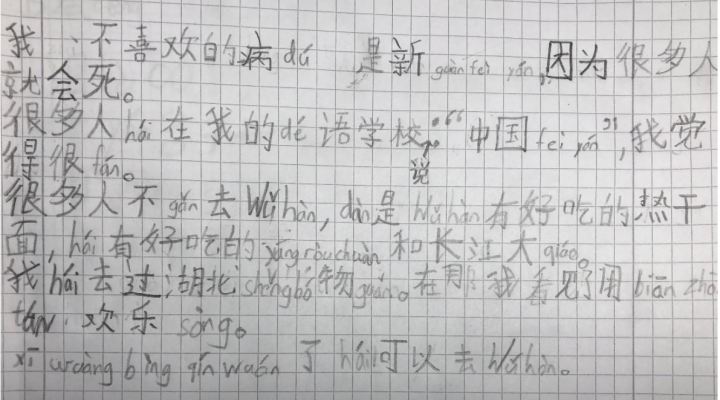 我不喜欢的病dú 是新guàn fèi yán,因为很多人
就会死。
很多人hái在我的dé语学校说:“中国fèi yán”,我觉
得很fán。
很多人不gǎn去Wǔhàn, dàn是Wǔhàn有好吃的热干
面, hái有好吃的yángròuchuàn和长江大qiáo。
我hái去过湖北shěngbó物guǎn。在那我看见了用biān zhō
欢乐sòng。
xī wàng bìng qíng wán了hái可以去Wǔhàn。